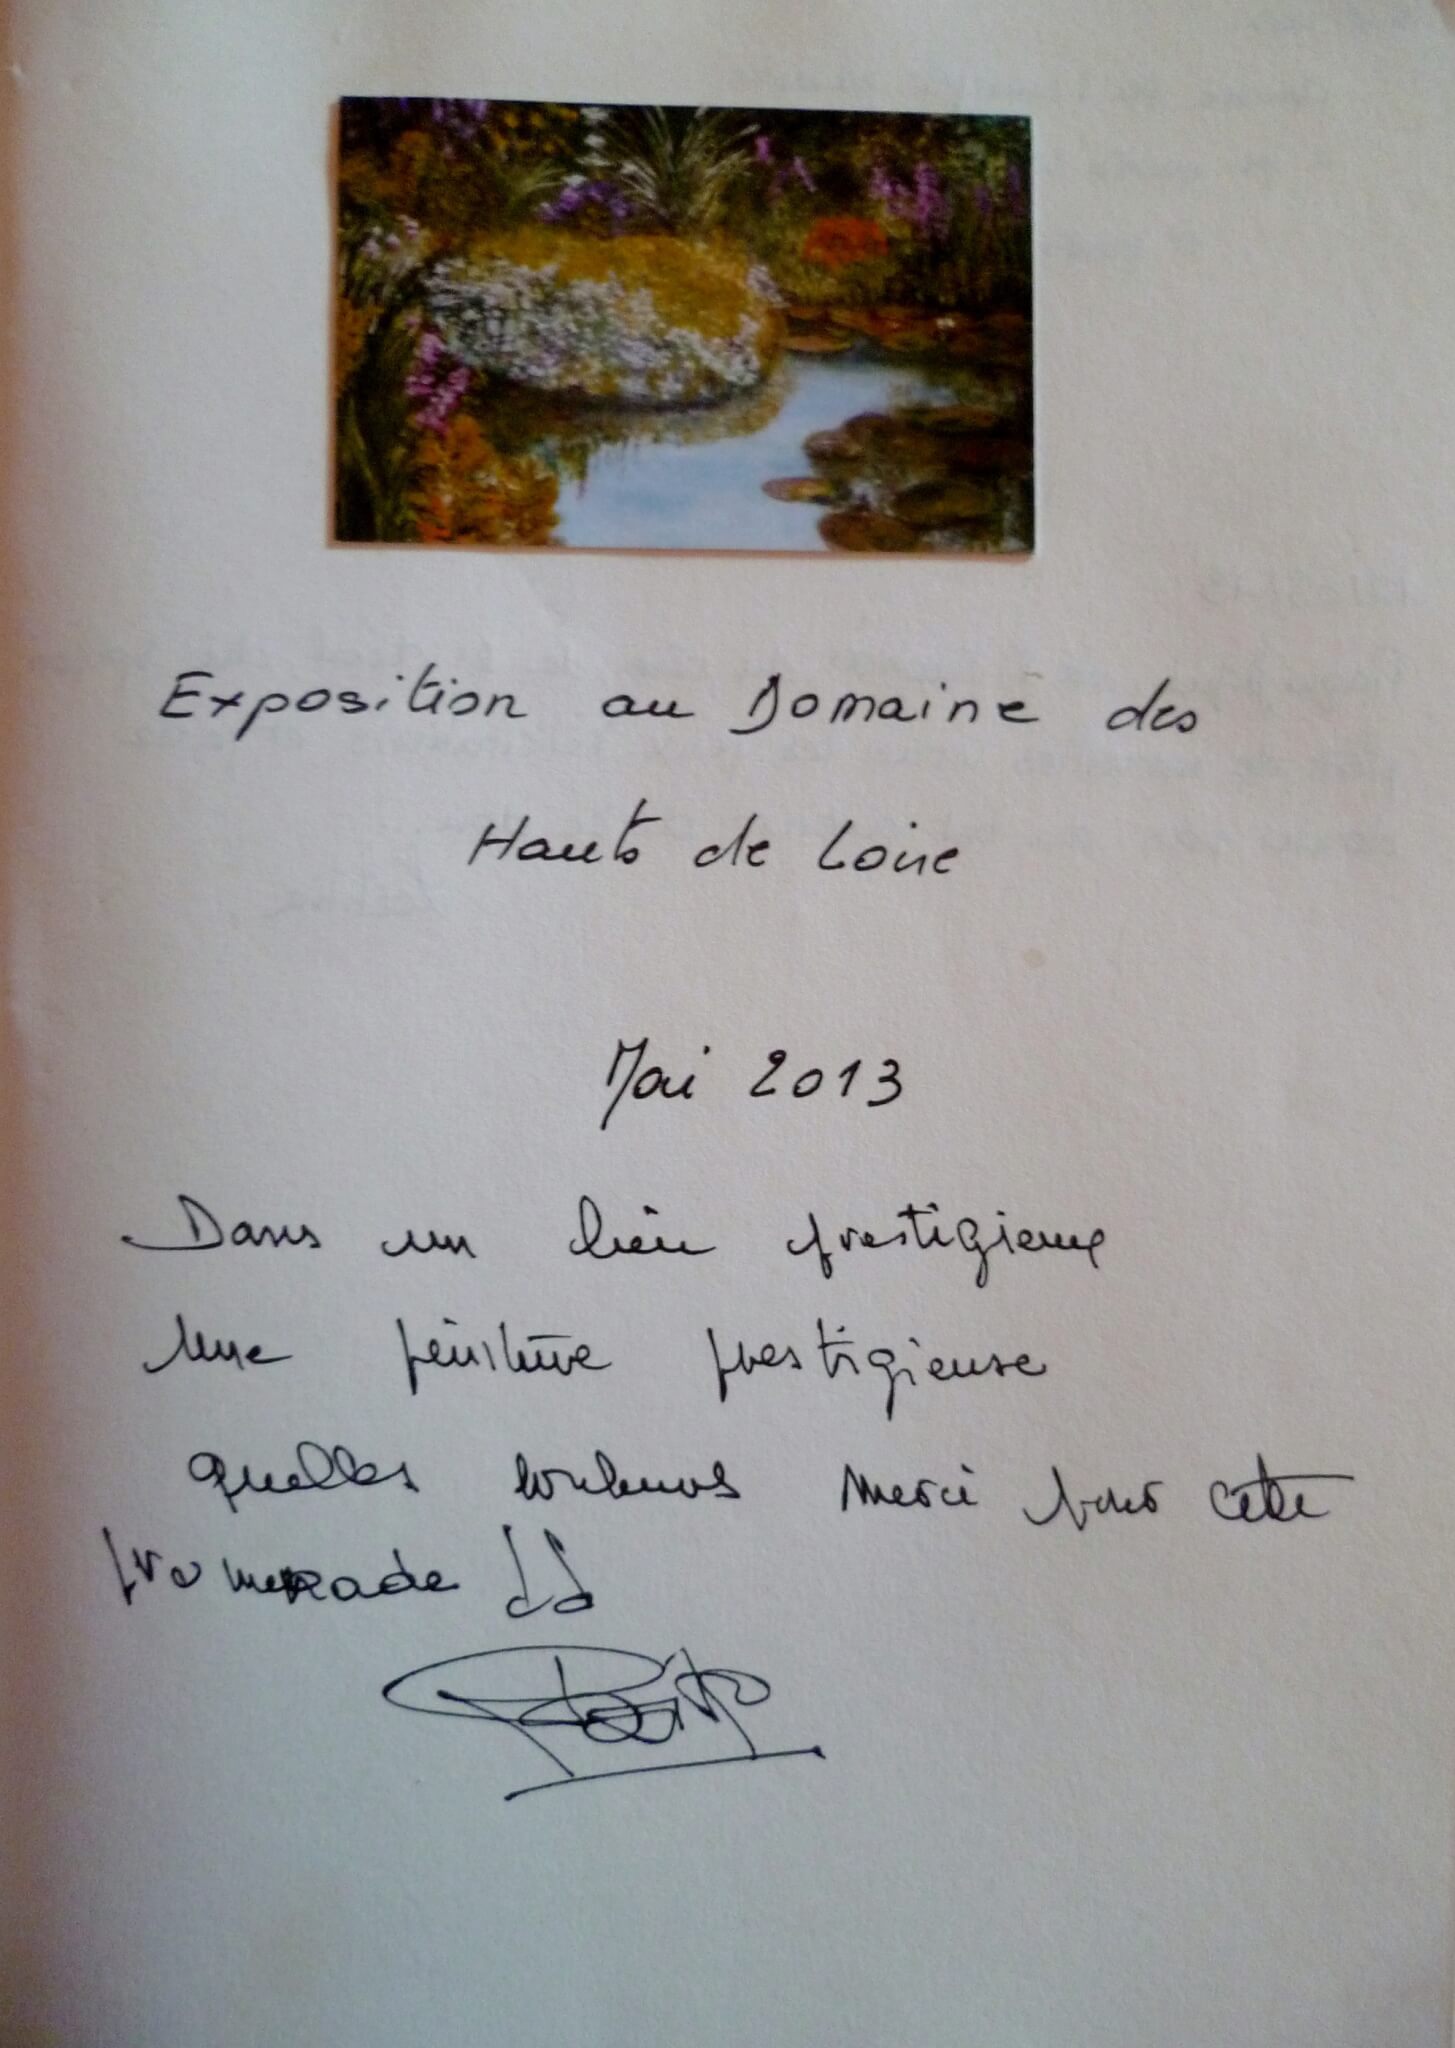 Exposition au Domaine des
Hauts de Loire
Mai 2013
Dans un lieu prestigieux
Une peinture prestigieuse
quelles couleurs Merci pour cette
promenade !!